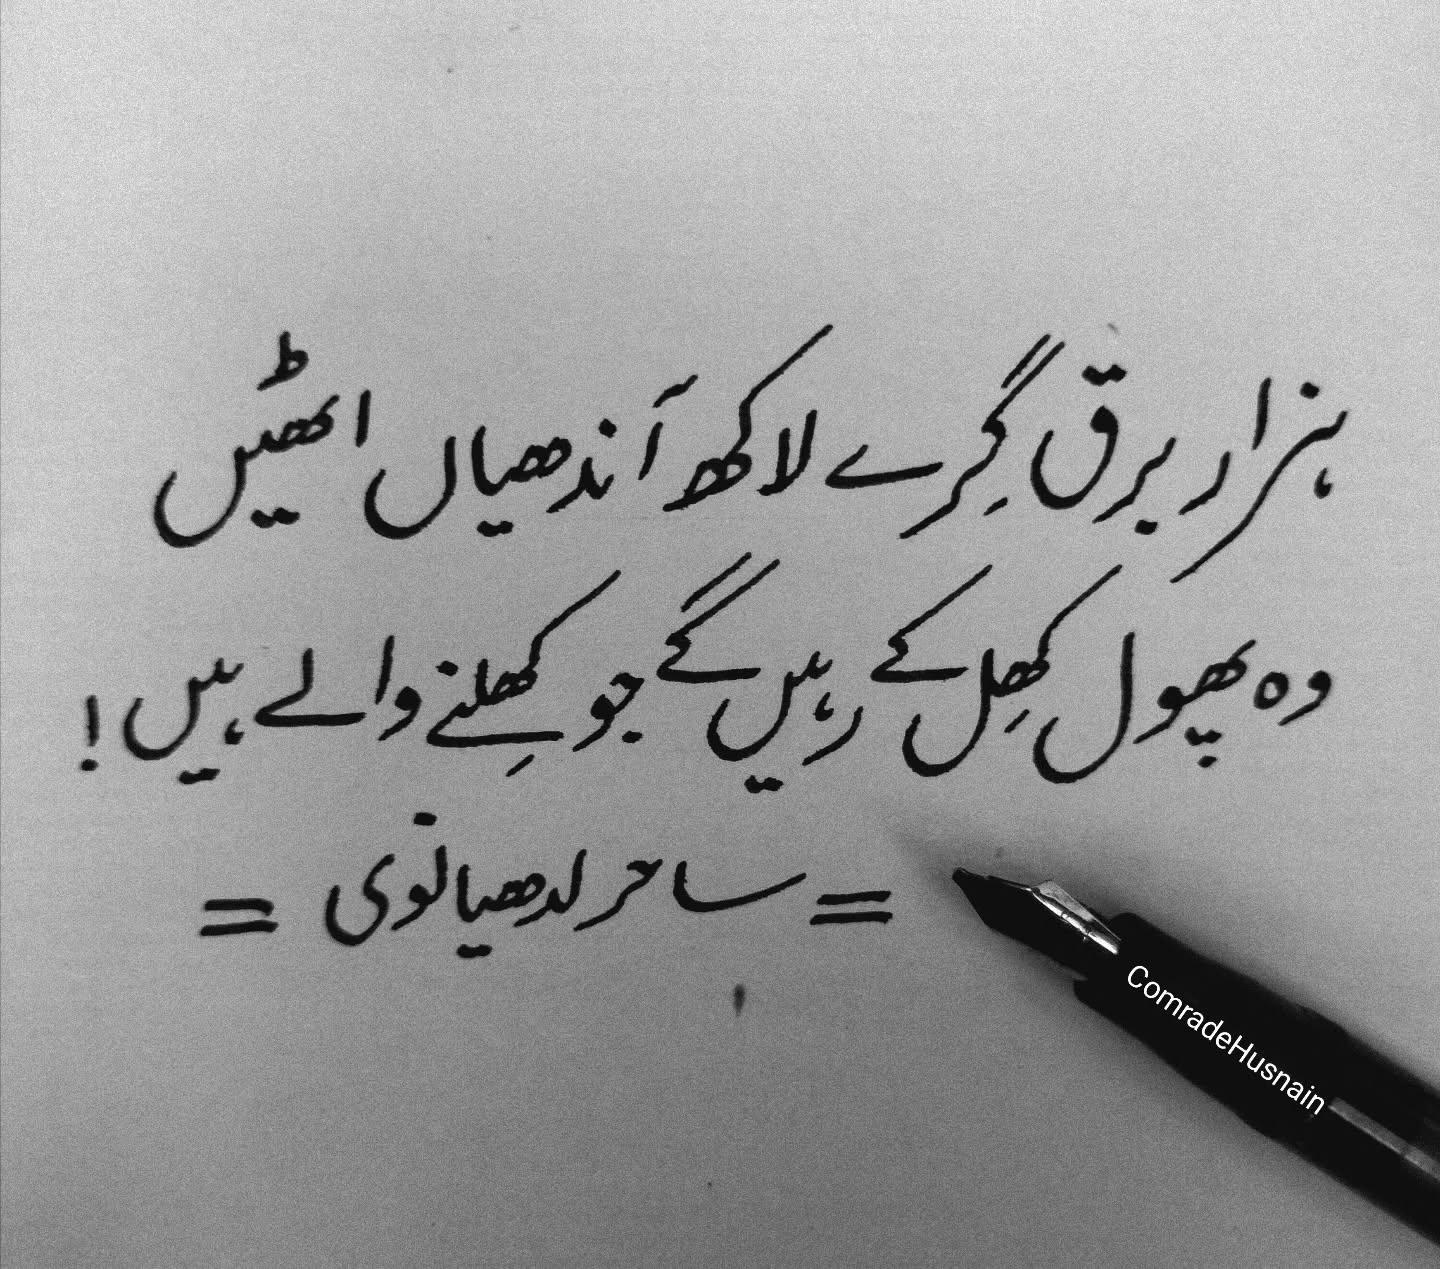 ہزار برق گِرے لاکھ آندھیاں اٹھیں
وہ پھول کھِل کے رہیں گے جو کھِلنے والے ہیں!
= ساحر لدھیانوی =
ComradeHusnain